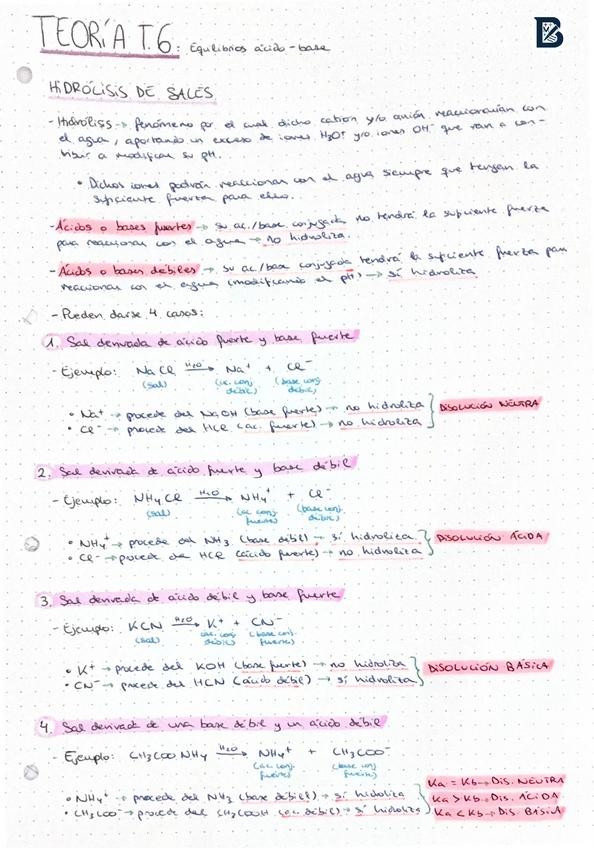 TEORÍA T.6: Equilibrios ácido-base
HIDRÓLISIS DE SALES
- Hidrólisis → fenómeno por el cual dicho catión y/o anión reaccionarían con
el agua, aportando un exceso de iones H₃O⁺ y/o iones OH⁻ que van a con-
tribuir a modificar su pH.
• Dichos iones podrán reaccionar con el agua siempre que tengan la
suficiente fuerza para ello.
- Ácidos o bases fuertes → su ac./base conjugada no tendrá la suficiente fuerza
para reaccionar con el agua → no hidroliza.
- Ácidos o bases débiles → su ac./base conjugada tendrá la suficiente fuerza para
reaccionar con el agua (modificando el pH) → sí hidroliza
- Pueden darse 4 casos:
1. Sal derivada de ácido fuerte y base fuerte
- Ejemplo: NaCl H₂O→ Na⁺ + Cl⁻
(sal) (ac. conj. débil) (base conj. débil)
• Na⁺ → procede del NaOH (base fuerte) → no hidroliza } DISOLUCIÓN NEUTRA
• Cl⁻ → procede del HCl (ac. fuerte) → no hidroliza
2. Sal derivada de ácido fuerte y base débil
- Ejemplo: NH₄Cl H₂O→ NH₄⁺ + Cl⁻
(sal) (ac. conj. fuerte) (base conj. débil)
• NH₄⁺ → procede del NH₃ (base débil) → sí hidroliza } DISOLUCIÓN ÁCIDA
• Cl⁻ → procede del HCl (ácido fuerte) → no hidroliza
3. Sal derivada de ácido débil y base fuerte
- Ejemplo: KCN H₂O→ K⁺ + CN⁻
(sal) (ac. conj. débil) (base conj. fuerte)
• K⁺ → procede del KOH (base fuerte) → no hidroliza } DISOLUCIÓN BÁSICA
• CN⁻ → procede del HCN (ácido débil) → sí hidroliza
4. Sal derivada de una base débil y un ácido débil
- Ejemplo: CH₃COONH₄ H₂O→ NH₄⁺ + CH₃COO⁻
(ac. conj. fuerte) (base conj. fuerte)
Ka = Kb → Dis. NEUTRA
• NH₄⁺ → procede del NH₃ (base débil) → sí hidroliza } Ka > Kb → Dis. ÁCIDA
• CH₃COO⁻ → procede del CH₃COOH (ac. débil) → sí hidroliza Ka < Kb → Dis. BÁSICA